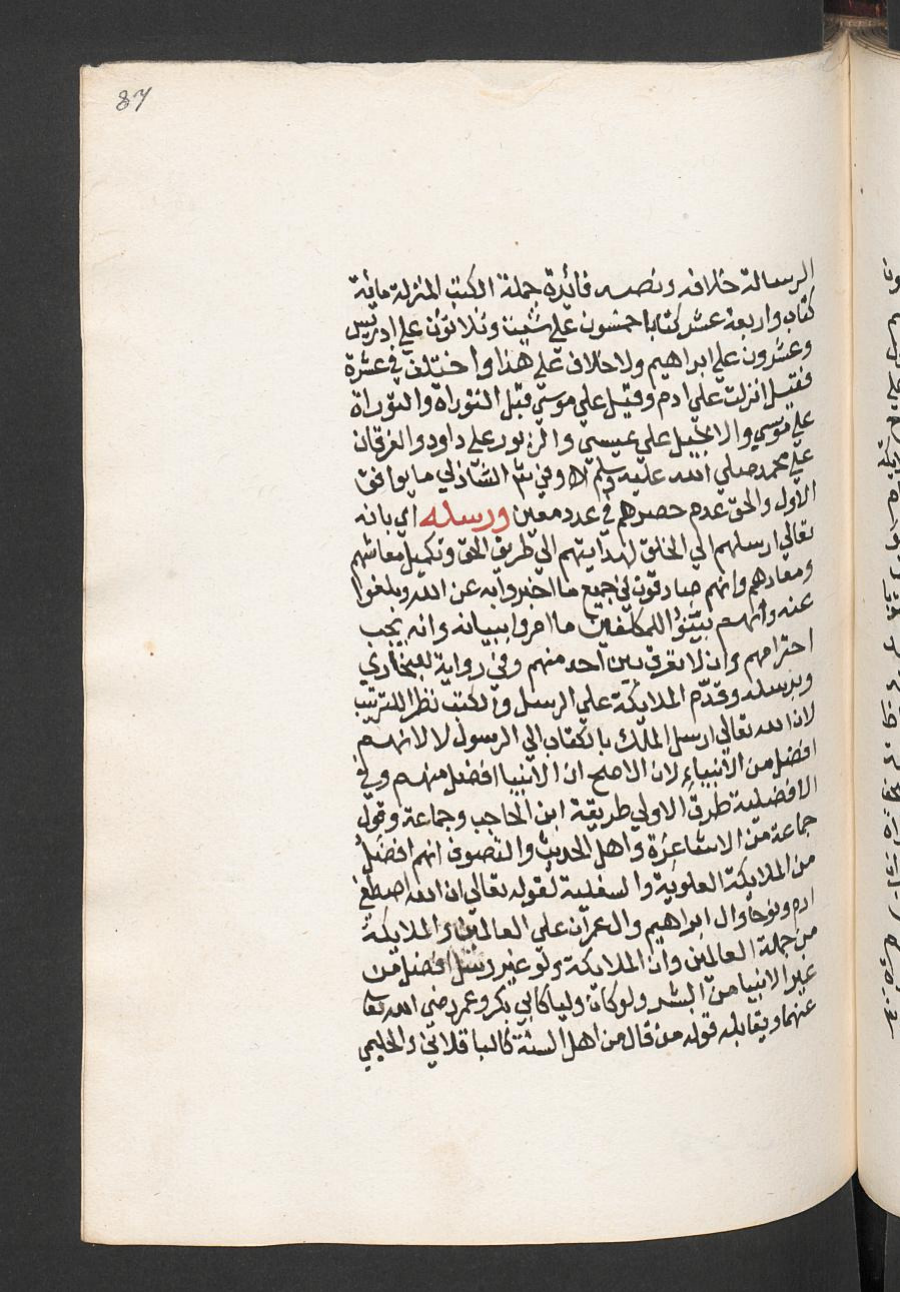 87
الرسالة خلافه ونصه فائدة جملة الكتب المنزلة مائة
كتاب واربعة عشر كتابا خمسون على شيث وثلاثون على ادريس
وعشرون على ابراهيم ولا خلاف على هذا واختلف في عشرة
فقيل انزلت على ادم وقيل على موسى قبل التوراة والتوراة
على موسى والانجيل على عيسى والزبور على داود والفرقان
على محمد صلى الله عليه وسلم اه وفي الشاذلي ما يوافق
الاول والحق عدم حصرهم في عدد معين ورسله اي بانه
تعالى ارسلهم الى الخلق لهدايتهم الى طريق الحق وتكميل معاشهم
ومعادهم وانهم صادقون في جميع ما اخبروا به عن الله وبلغوا
عنه وانهم بيّنوا للمكلفين ما امروا ببيانه وانه يجب
احترامهم وان لا نفرق بين احد منهم وفي رواية للبخاري
وبرسله وقدّم الملايكة على الرسل والكتب نظرا للترتيب
لان الله تعالى ارسل الملك بالكتاب الى الرسول لا لانهم
افضل من الانبياء لان الاصح ان الانبيا افضل منهم وفي
الافضلية طرق الاولى طريقة ابن الحاجب وجماعة وقول
جماعة من الاشاعرة واهل الحديث والتصوف انهم افضل
من الملايكة العلوية والسفلية لقوله تعالى ان الله اصطفى
ادم ونوحا وال ابراهيم وال عمران على العالمين والملايكة
من جملة العالمين وان الملايكة ولو غير رسل افضل من
غير الانبيا من البشر ولو كان وليا كابي بكر وعمر رضي الله تعا
عنهما ويقابله قوله من قال من اهل السنة كالباقلاني والحليمي